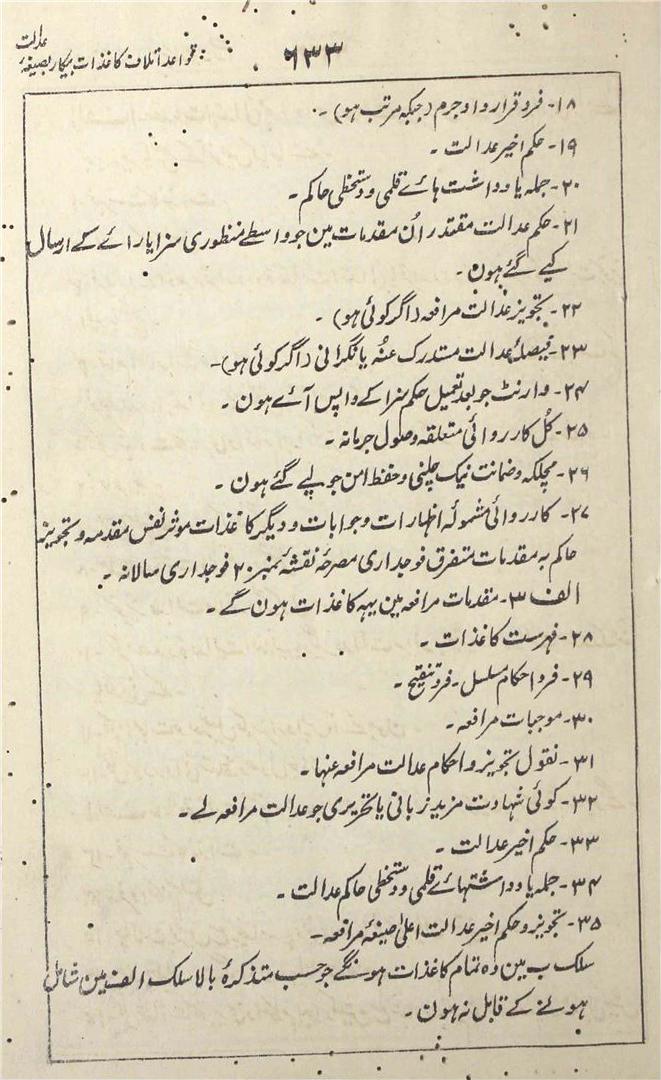 عدالت
قواعد اتلاف کاغذات بیکار بصیغۂ
۶۳۳
۱۸۔ فرد قرار داد جرم (جبکہ مرتب ہو) ۔
۱۹۔ حکم اخیر عدالت ۔
۲۰۔ جملہ یادداشت ہائے قلمی و دستخطی حاکم ۔
۲۱۔ حکم عدالت مقتدر اُن مقدمات مین جو واسطے منظوری سزا یا رائے کے ارسال
کیے گئے ہون ۔
۲۲۔ تجویز عدالت مرافعہ (اگر کوئی ہو) ۔
۲۳۔ فیصلۂ عدالت مستدرک عنُہ یا نگرانی (اگر کوئی ہو)۔
۲۴۔ وارنٹ جو بعد تعمیل حکم سزا کے واپس آئے ہون ۔
۲۵۔ کُل کارروائی متعلقہ وصول جرمانہ ۔
۲۶۔ مچلکہ و ضمانت نیک چلنی و حفظ امن جو لیے گئے ہون ۔
۲۷۔ کارروائی مشمولۂ اظہارات و جوابات و دیگر کاغذات موثر نفس مقدمہ و تجویز
حاکم بہ مقدمات متفرق فوجداری مصرحۂ نقشۂ نمبر ۲۰ فوجداری سالانہ ۔
الف ۳۔ مقدمات مرافعہ مین یہہ کاغذات ہون گے ۔
۲۸۔ فہرست کاغذات ۔
۲۹۔ فرد احکام مسلسل ۔ فرد تنقیح ۔
۳۰۔ موجبات مرافعہ ۔
۳۱۔ نقول تجویز و احکام عدالت مرافعہ عنہا ۔
۳۲۔ کوئی شہادت مزید زبانی یا تحریری جو عدالت مرافعہ لے ۔
۳۳۔ حکم اخیر عدالت ۔
۳۴۔ جملہ یادداشتہائے قلمی و دستخطی حاکم عدالت ۔
۳۵۔ تجویز و حکم اخیر عدالت اعلیٰ صیغۂ مرافعہ ۔
سلک ب مین وہ تمام کاغذات ہونگے جو حسب متذکرۂ بالا سلک الف مین شامل
ہونے کے قابل نہ ہون ۔